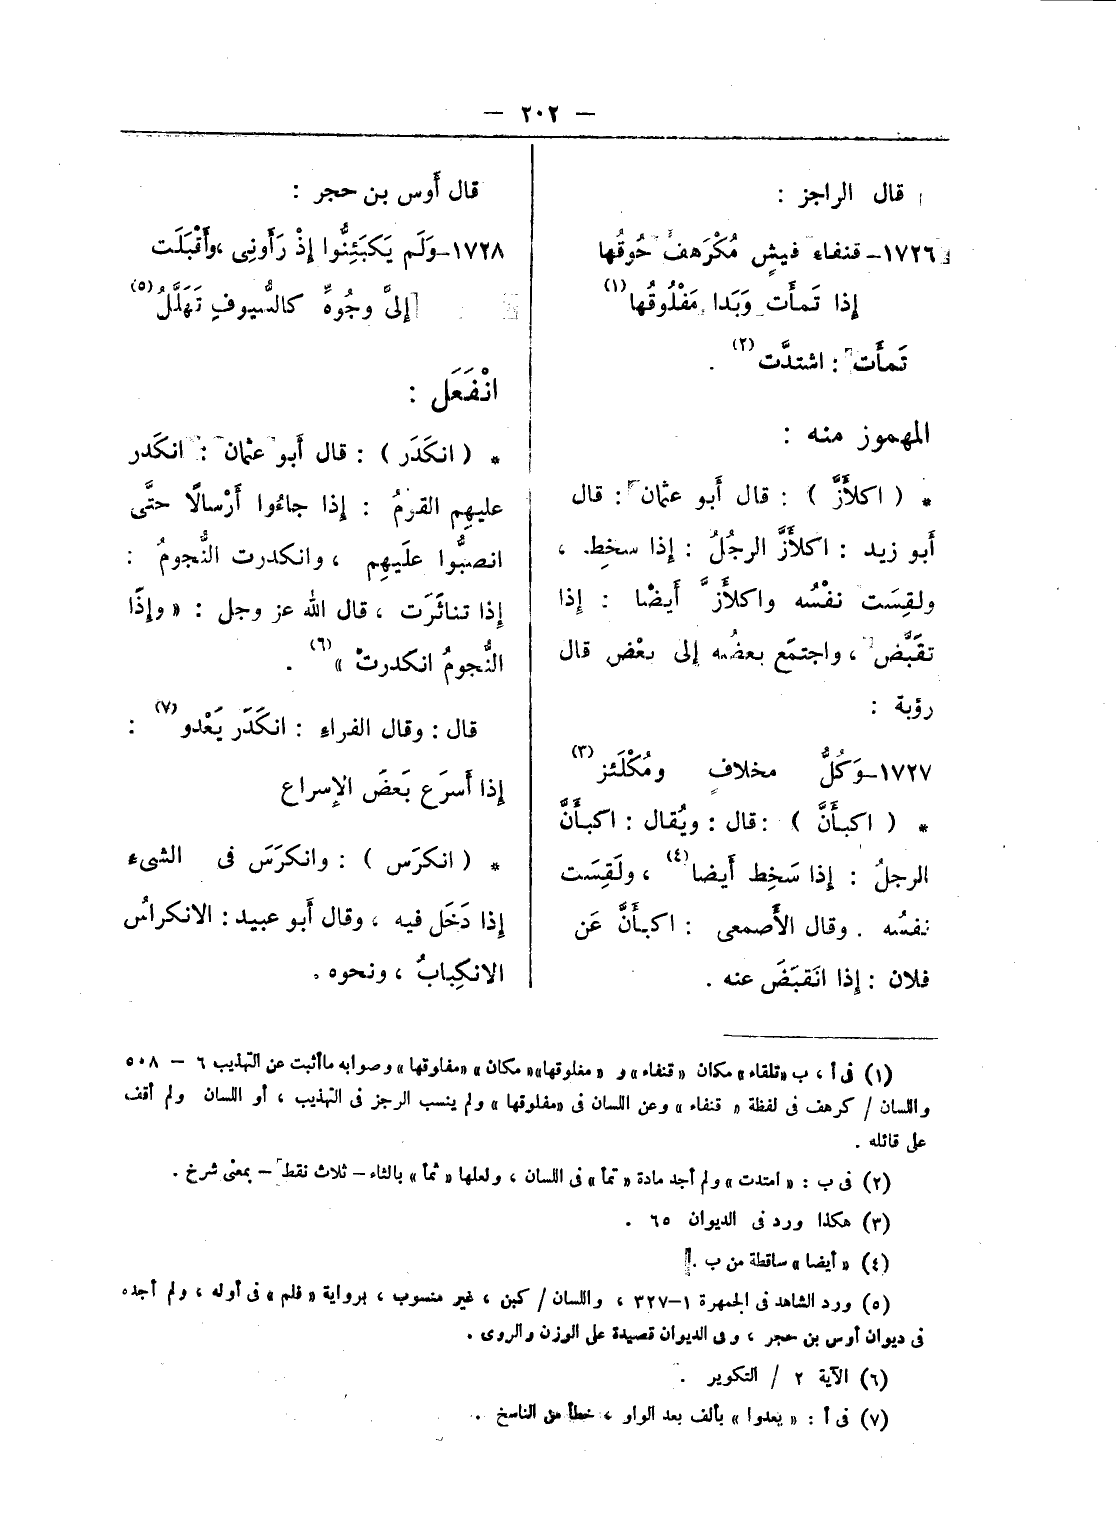 — ٢٠٢ —
قال الراجز :
١٧٢٦ــ قنفاء فيشٍ مُكْرَهفٌ حُوقُها
إذا تَمأَت وَبَدا مَفْلُوقُها (١)
تَمأَت : اشتدَّت (٢) .
المهموز منه :
* ( اكلأَزَّ ) : قال أَبو عثمان : قال
أَبو زيد : اكلأَزَّ الرجُلُ : إذا سخِط ،
ولقِسَت نفْسُه واكلأَزَّ أَيضًا : إذا
تقَبَّض ، واجتمَع بعضُه إلى بعْض قال
رؤبة :
١٧٢٧ــوَكُلُّ مخلافٍ ومُكْلَئز (٣)
* ( اكبأَنَّ ) : قال : ويُقال : اكبأَنَّ
الرجلُ : إذا سَخِط أَيضا (٤) ، ولَقِسَت
نفسُه . وقال الأَصمعى : اكبأَنَّ عَن
فلان : إذا انَقبَضَ عنه .
قال أَوس بن حجر :
١٧٢٨ــوَلَم يَكبَئِنُّوا إذْ رَأَونِى ،وأَقْبَلَت
إلىَّ وجُوهٌ كالسُّيوفِ تَهَلَّلُ (٥)
انْفَعَل :
* ( انكَدَر ) : قال أَبو عثمان : انكَدر
عليهِم القومُ : إذا جاءُوا أَرْسالًا حتَّى
انصبُّوا علَيهِم ، وانكدرت النُّجومُ :
إذا تناثَرَت ، قال الله عز وجل : « وإذَا
النُّجومُ انكدرتْ » (٦) .
قال : وقال الفراء : انكَدَر يَعْدو (٧) :
إذا أَسرَع بَعضَ الإسراع
* ( انكرَس ) : وانكرَسَ فى الشىء
إذا دَخَل فيه ، وقال أَبو عبيد : الانكراسُ
الانكِبابُ ، ونحوه .
(١) فى أ ، ب «تلقاء» مكان «قنفاء» و «مغلوقها» مكان «مفلوقها» وصوابه ماأثبت عن التهذيب ٦ – ٥٠٨
واللسان / كرهف فى لفظة « قنفاء » وعن اللسان فى «مفلوقها» ولم ينسب الرجز فى التهذيب ، أو اللسان ولم أقف
على قائله .
(٢) فى ب : « امتدت » ولم أجد مادة « تمأ » فى اللسان ، ولعلها « ثمأ » بالثاء – ثلاث نقط – بمعنى شرخ .
(٣) هكذا ورد فى الديوان ٦٥ .
(٤) « أيضا » ساقطة من ب .
(٥) ورد الشاهد فى الجمهرة ١–٣٢٧ ، واللسان / كبن ، غير منسوب ، برواية « فلم » فى أوله ، ولم أجده
فى ديوان أوس بن حجر ، وفى الديوان قصيدة على الوزن والروى .
(٦) الآية ٢ / التكوير .
(٧) فى أ : « يعدوا » بألف بعد الواو ، خطأ من الناسخ .